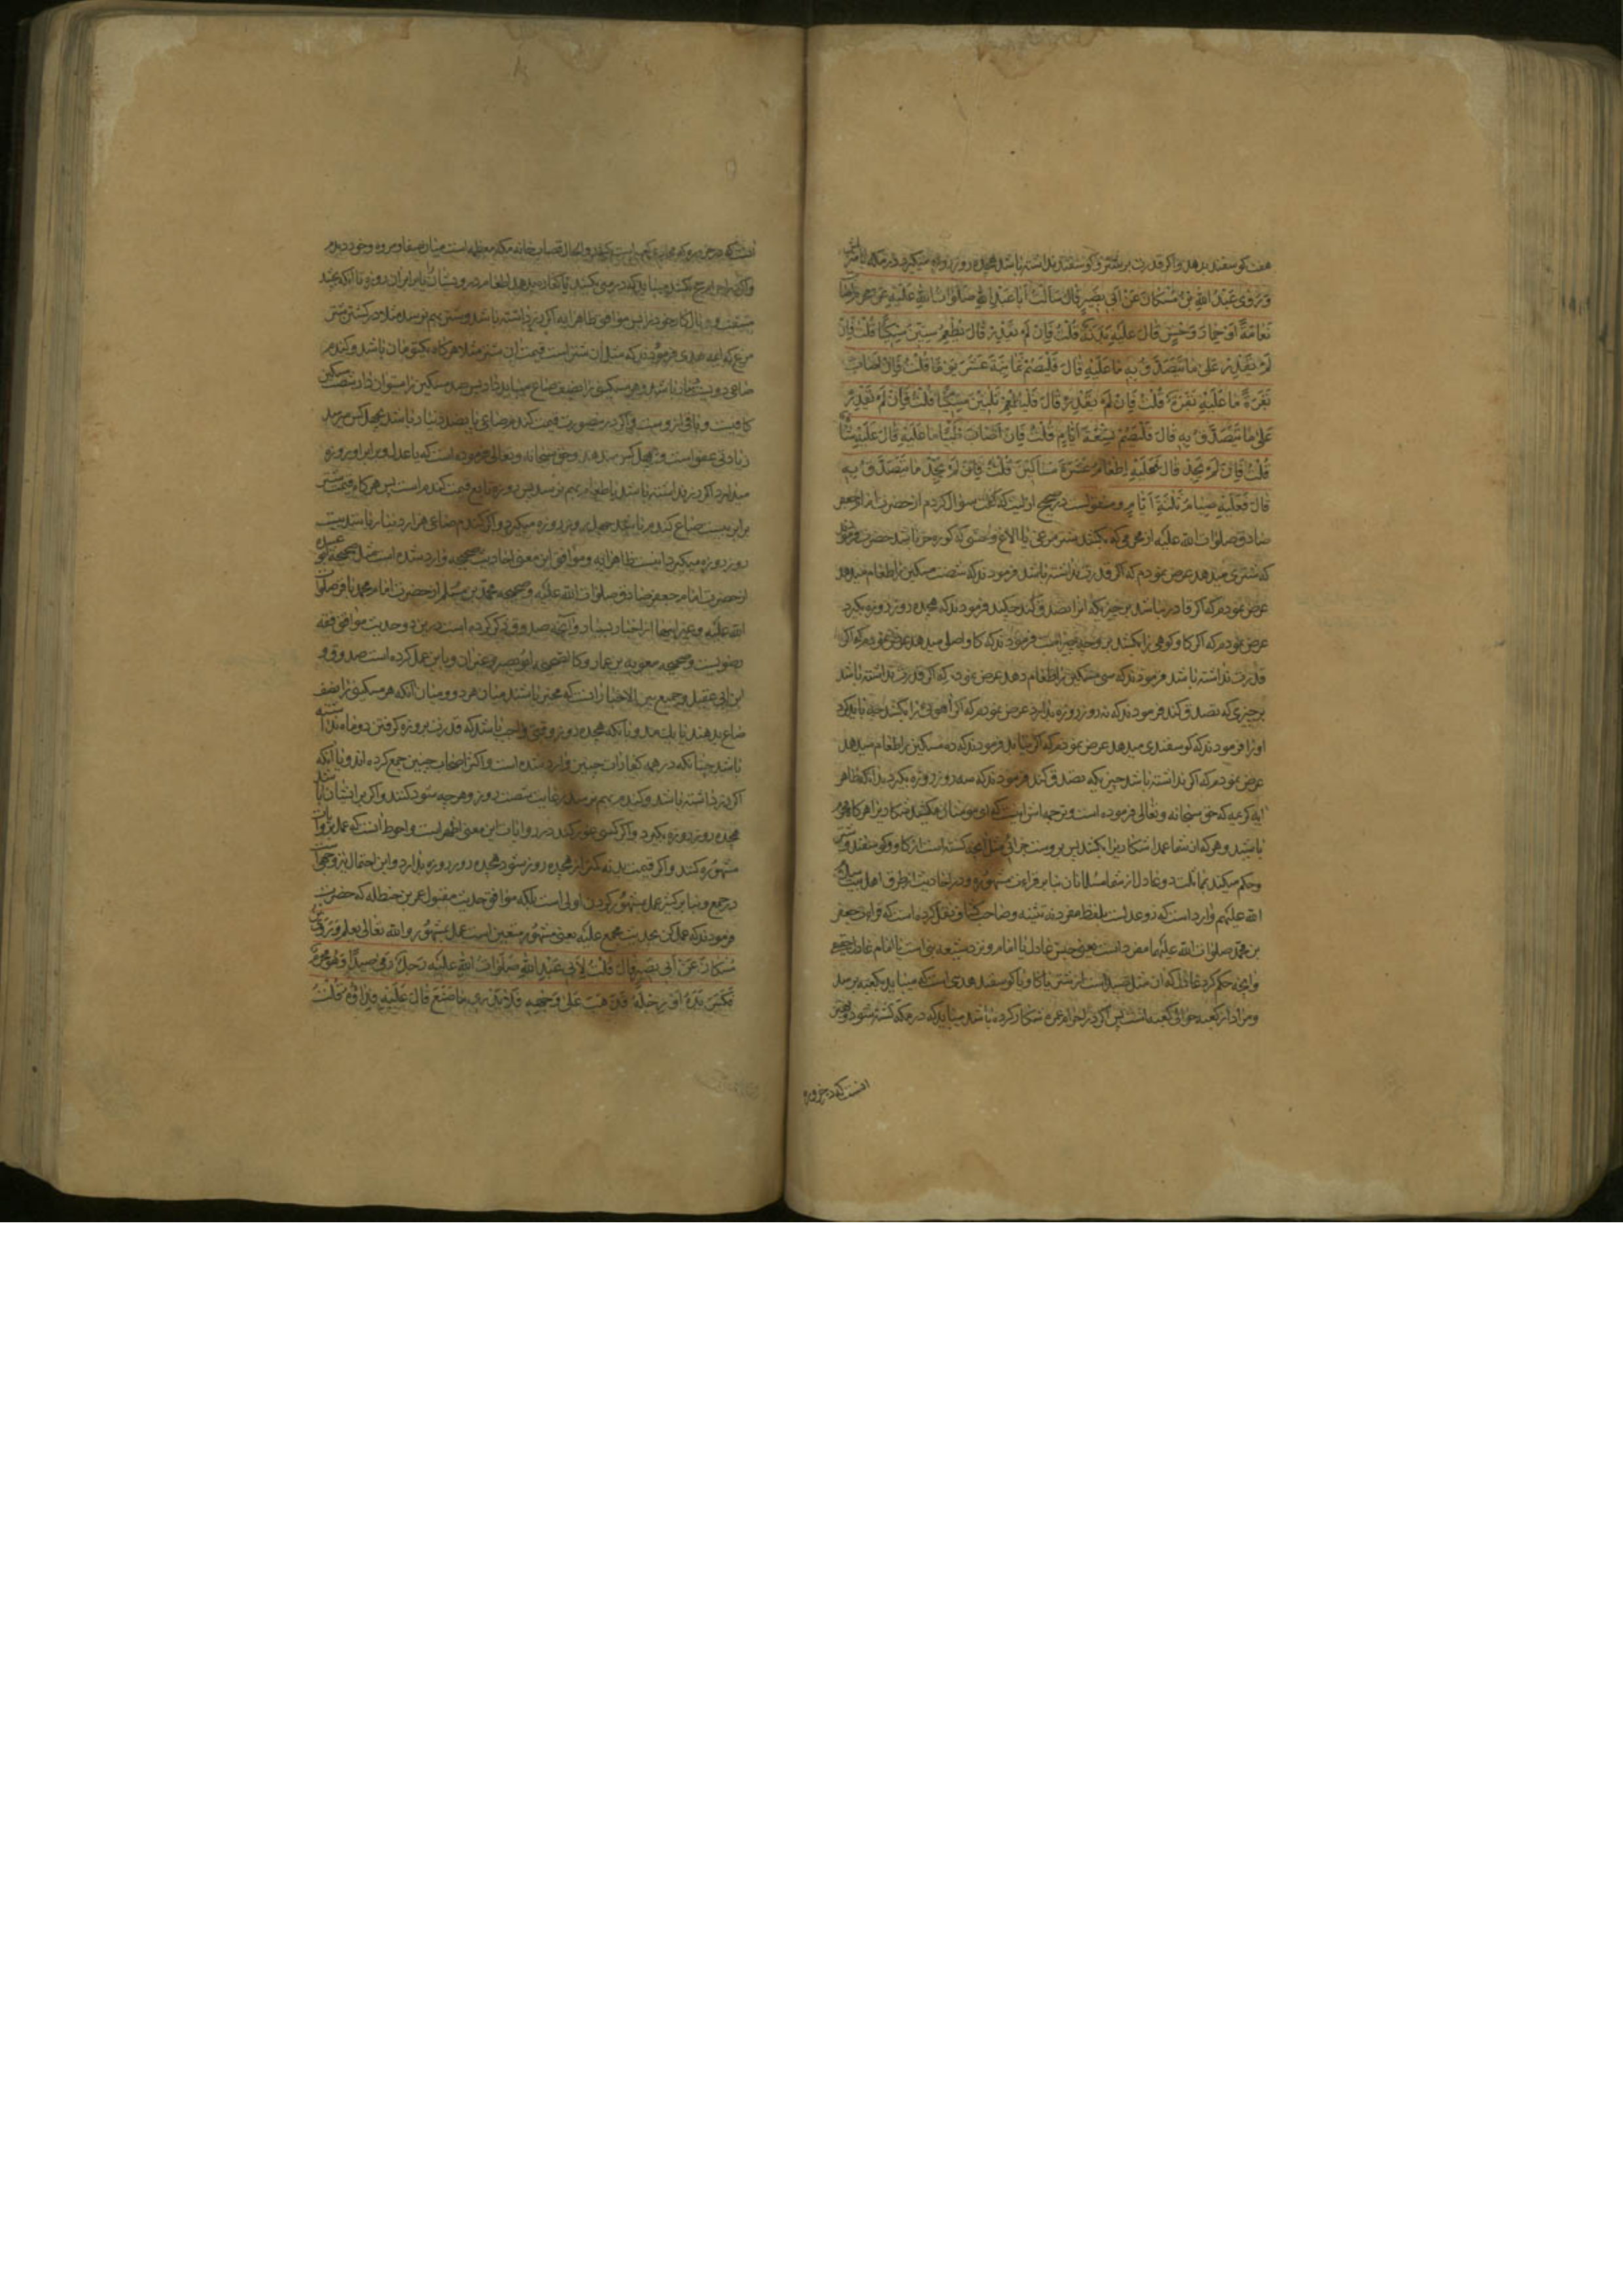 هفت کوسفند بدهد واکر قدرت بر شتر و کوسفند نداشته باشد هجده روز روزه میکیرد در مکه یا در
وَرَوی عَبْدُ اللهِ بْنُ مُسْکانَ عَنْ اَبی بَصیرٍ قالَ سَاَلْتُ اَبا عَبْدِ اللهِ صَلَواتُ اللهِ عَلَیْهِ عَنْ مُحْرِمٍ اَصابَ
نَعامَةً اَوْ حِمارَ وَحْشٍ قالَ عَلَیْهِ بَدَنَةٌ قُلْتُ فَاِنْ لَمْ یَقْدِرْ قالَ یُطْعِمُ سِتّینَ مِسْکیناً قُلْتُ فَاِنْ
لَمْ یَقْدِرْ عَلی ما یَتَصَدَّقُ بِهِ ما عَلَیْهِ قالَ فَلْیَصُمْ ثَمانِیَةَ عَشَرَ یَوْماً قُلْتُ فَاِنْ اَصابَ
بَقَرَةً ما عَلَیْهِ قالَ عَلَیْهِ بَقَرَةٌ قُلْتُ فَاِنْ لَمْ یَقْدِرْ قالَ فَلْیُطْعِمْ ثَلثینَ مِسْکیناً قُلْتُ فَاِنْ لَمْ یَقْدِرْ
عَلی ما یَتَصَدَّقُ بِهِ قالَ فَلْیَصُمْ تِسْعَةَ اَیّامٍ قُلْتُ فَاِنْ اَصابَ ظَبْیاً ما عَلَیْهِ قالَ عَلَیْهِ شاةٌ
قُلْتُ فَاِنْ لَمْ یَجِدْ قالَ فَعَلَیْهِ اِطْعامُ عَشَرَةِ مَساکینَ قُلْتُ فَاِنْ لَمْ یَجِدْ ما یَتَصَدَّقُ بِهِ
قالَ فَعَلَیْهِ صِیامُ ثَلثَةِ اَیّامٍ ومنقول است در صحیح از لیث که کفت سؤال کردم از حضرت امام جعفر
صادق صلوات الله علیه از محرمی که بکشد شتر مرغی یا الاغ وحشی که کوره خر باشد حضرت فرمودند
که شتری میدهد عرض نمودم که اکر قدرت نداشته باشد فرمودند که شصت مسکین را طعام میدهد
عرض نمودم که اکر قادر نباشد بر چیزیکه انرا تصدق کند چکند فرمودند که هجده روز روزه بکیرد
عرض نمودم که اکر کاو کوهی را بکشد بر او چه چیز است فرمودند که کاو اهلی میدهد عرض نمودم که اکر
قدرت نداشته باشد فرمودند که سی مسکین را طعام دهد عرض نمودم که اکر قدرت نداشته باشد
بر چیزی که تصدق کند فرمودند که نه روز روزه بدارد عرض نمودم که اکر آهوئی را بکشد چه باید کرد
او را فرمودند که کوسفندی میدهد عرض نمودم که اکر نیابد فرمودند که ده مسکین را طعام میدهد
عرض نمودم که اکر نداشته باشد چیزیکه تصدق کند فرمودند که سه روز روزه بکیرد بدانکه ظاهر
آیه کریمه که حق سبحانه وتعالی فرموده است وترجمه اش اینست که ای مومنان مکشید شکار را هرکاه محرم
باشید وهر که از شما عمدا شکار را بکشد پس بر اوست جزائی مثل آنچه کشته است از کاو وکوسفند وشتر
وحکم میکنند بمماثلت دو عادل از شما مسلمانان بنا بر قراءت مشهوره ودر احادیث از طرق اهل بیت سلام
الله علیهم وارد است که ذو عدل است بلفظ مفرد نه تثنیه وصاحب کشاف نقل کرده است که قراءت جعفر
بن محمد صلوات الله علیهما مفرد است یعنی جنس عادل یا امام ونزد شیعه نبی است یا امام عادل
وآنچه حکم کرد عادل که ان مثل صید است از شتر یا کاو ویا کوسفند هدی است که میباید بکعبه برسد
ومراد از کعبه حوالی کعبه است پس اکر در احرام عمره شکار کرده باشد میباید که در مکه کشته شود وبهتر
انست که در حزوره
آنست که در حزوره که محاذی کعبه است بکشد والحال قصاب خانه مکه معظمه است میان صفا ومروه وخود دیدم
واکر در احرام حج بکشد میباید که در منی بکشد یا کفاره بدهد اطعام درویشان یا برابر ان روزه تا آنکه بچشد
مشقت ووبال کار خود را پس موافق ظاهر آیه اکر زر داشته باشد وشتر بهم نرسد مثلا در کشتن شتر
مرغ که ائمه هدی فرمودند که مثل آن شتر است قیمت ان شتر مثلا هرکاه یکتومان باشد وکندم
صاعی دویست دینار باشد وهر مسکینی را نصف صاع میباید داد پس صد مسکین را میتوان داد شصت مسکین
کافیست وباقی از اوست واکر درین صورت قیمت کندم صاعی پانصد دینار باشد بچهل کس میرسد
زیادتی عفو است وبچهل کس میدهد وحق سبحانه وتعالی فرموده است که یا عدل وبرابر او روزه
میدارد اکر زر نداشته باشد یا طعام بهم نرسد پس روزه تابع قیمت کندم است پس هرکاه قیمت شتر
برابر بیست صاع کندم باشد چهل روز روزه میکیرد واکر کندم صاعی هزار دینار باشد بیست
روز روزه میکیرد اینست ظاهر آیه وموافق این معنی احادیث صحیحه وارد شده است مثل صحیحه ابو عبیده
از حضرت امام جعفر صادق صلوات الله علیه وصحیحه محمد بن مسلم از حضرت امام محمد باقر صلوات
الله علیه وغیر اینها از اخبار بسیار وآنچه صدوق ذکر کرده است درین دو حدیث موافق فقه
رضویست وصحیحه معویه بن عمار وکالصحیحه ابو بصیر وغیر ان وباین عمل کرده است صدوق و
ابن ابی عقیل وجمع بین الاخبار آنست که مخیر باشند میان هر دو ومیان آنکه هر مسکینی را نصف
صاع بدهند یا یک مد وبآنکه هجده روز وقتی واجب باشد که قدرت بروزه کرفتن دو ماه نداشته
باشد چنانکه در همه کفارات چنین وارد شده است واکثر اصحاب چنین جمع کرده اند ویا آنکه
اکر زر داشته باشد وکندم بهم نرسد رعایت شصت روز وهر چه شود کنند واکر بر ایشان
هجده روز روزه بکیرد واکر کسی غور کند در روایات این معنی اظهر است واحوط آنست که عمل بروایات
مشهوره کنند واکر قیمت بدنه کمتر از هجده روز شود هجده روز روزه بدارد واین احتمال نزد جمعی
در جمع وبنا بر کثیر عمل بمشهور کردن اولی است بلکه موافق حدیث مقبول عمر بن حنظله که حضرت
فرمودند که عمل کن بحدیث مجمع علیه یعنی مشهور متعین است عمل بمشهور والله تعالی یعلم وَرَوی ابْنُ
مُسْکانَ عَنْ اَبی بَصیرٍ قالَ قُلْتُ لِاَبی عَبْدِ اللهِ صَلَواتُ اللهِ عَلَیْهِ رَجُلٌ رَمی صَیْداً وَهُوَ مُحْرِمٌ
فَکَسَرَ یَدَهُ اَوْ رِجْلَهُ فَذَهَبَ عَلی وَجْهِهِ فَلَمْ یَدْرِ ما صَنَعَ قالَ عَلَیْهِ فِداؤُهُ قُلْتُ